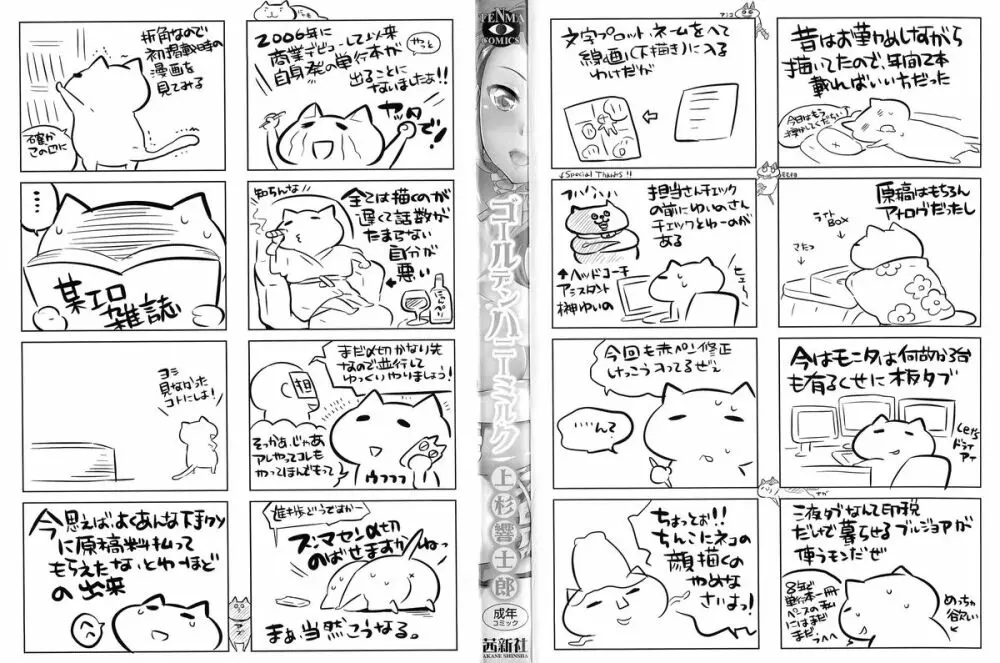 昔はお勤めしながら
描いてたので、年間2本
載ればいい方だった
今日はもう
寝かしてください
原稿はもちろん
アナログだったし
ライト
BOX
こたつ
今はモニタは何故か3台
も有るくせに板タブ
くせにドライアイ
液タブなんて印税
だけで暮らせるブルジョアが
使うモンだぜ
8年で
単行本一冊
ペースの私
にはまだ
まだフヘヘ
めっちゃ
欲しい
文字プロット、ネームをへて
線画(下描き)に入る
わけだが
↓Special Thanks!!
担当さんチェック
の前にゆいのさん
チェックとゆーのがある
↑ヘッドコーチ
アシスタント
榊ゆいの
ヒュー
今回も赤ペン修正
けっこう入ってるぜえ
…んて
ちょっとお!!
ちんこにネコの
顔描くの
やめな
さいよっ!
TENMA
COMICS
ゴールデンハニーミルク
上杉響士郎
成年
コミック
茜新社
AKANE SHINSHA
2006年に
商業デビューして以来
やっと
自身発の単行本が
出ることに
ないましたぁ!!
ヤッタ
で!
知らんな
全ては描くのが
遅くて話数が
たまらない
自分が
悪い
まだ〆切かなり先
なので並行して
ゆっくりやりましょう!
担
そっかぁ、じゃあ
アレやってコレも
やってほんでもって
ウフフフ
進捗どうですかー
ズマセン〆切
のばせますかねっ
まぁ当然こうなる。
折角なので
初掲載時の
漫画を
見てみる
確か
この辺に
…
某エロ
雑誌
ヨシ
見なかった
コトにしよ!
今思えばよくあんな下手クソ
に原稿料払って
もらえたなぁとゆーほど
の出来